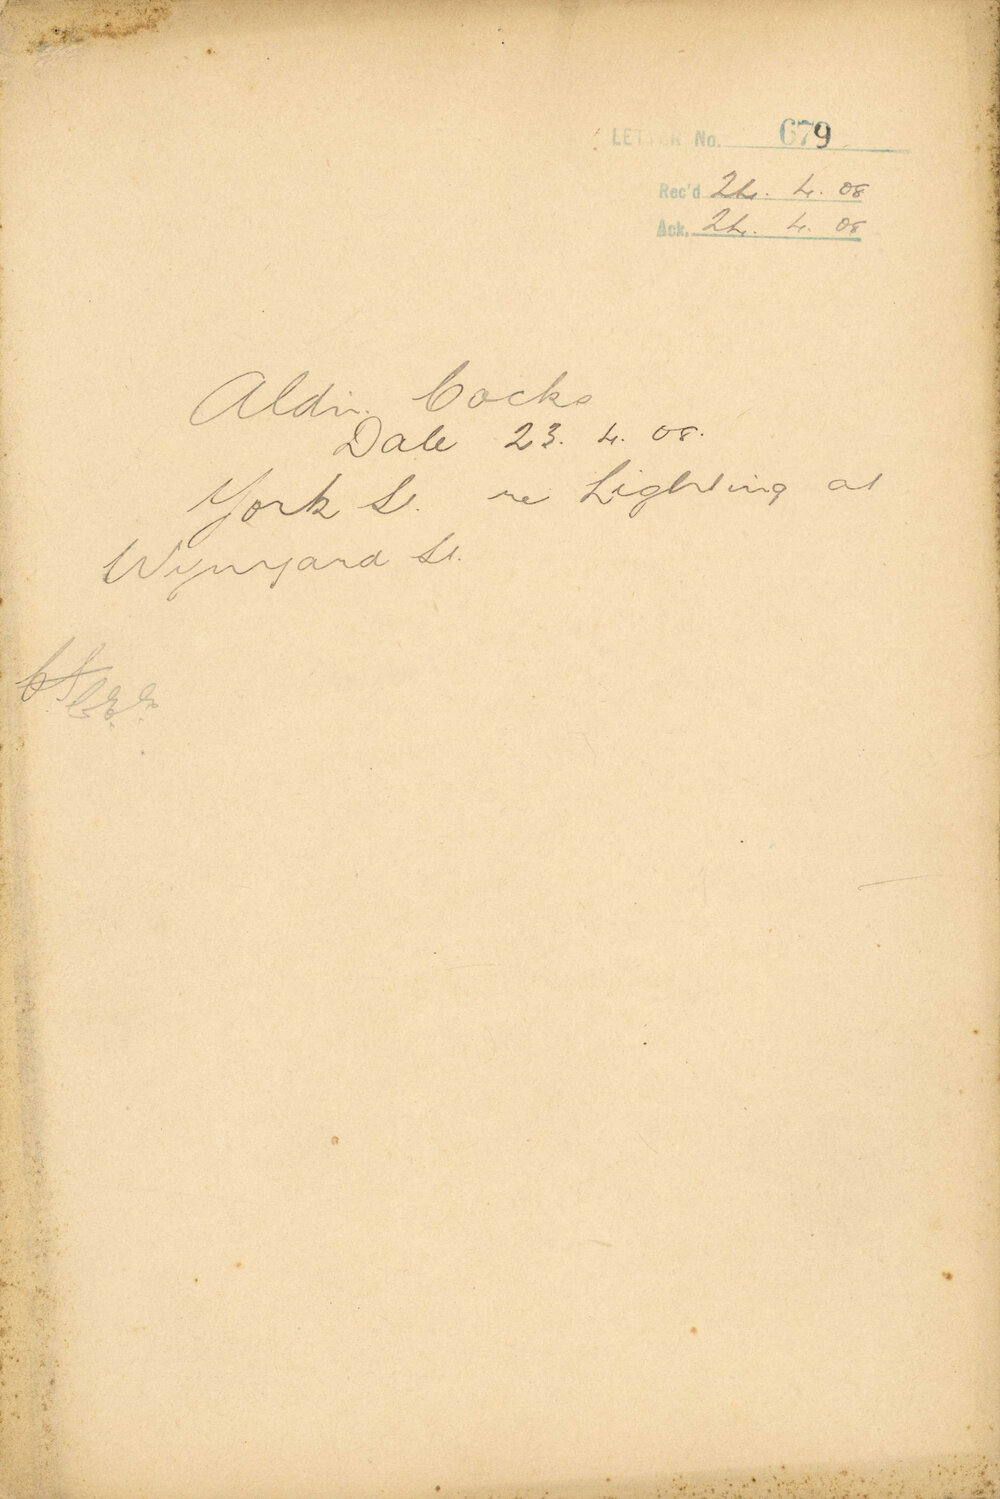 LETTER No. 679
Rec'd 24. 4. 08
Ack. 24. 4. 08
Aldn. Cocks
Date 23. 4. 08.
York St. re Lighting at
Wynyard St.